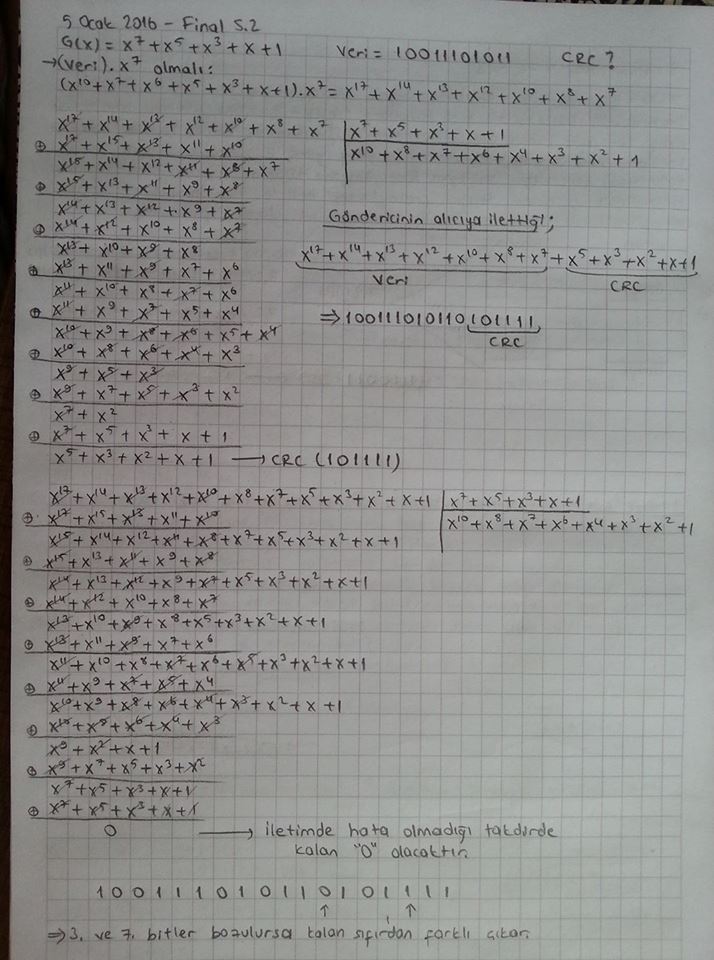 5 Ocak 2016 - Final S.2
G(x) = x⁷ + x⁵ + x³ + x + 1 Veri = 10011101011 CRC ?
→(veri). x⁷ olmalı:
(x¹⁰ + x⁷ + x⁶ + x⁵ + x³ + x + 1). x⁷ = x¹⁷ + x¹⁴ + x¹³ + x¹² + x¹⁰ + x⁸ + x⁷
x¹⁷ + x¹⁴ + x¹³ + x¹² + x¹⁰ + x⁸ + x⁷ | x⁷ + x⁵ + x³ + x + 1
⊕ x¹⁷ + x¹⁵ + x¹³ + x¹¹ + x¹⁰ | x¹⁰ + x⁸ + x⁷ + x⁶ + x⁴ + x³ + x² + 1
x¹⁵ + x¹⁴ + x¹² + x¹¹ + x⁸ + x⁷
⊕ x¹⁵ + x¹³ + x¹¹ + x⁹ + x⁸
x¹⁴ + x¹³ + x¹² + x⁹ + x⁷
⊕ x¹⁴ + x¹² + x¹⁰ + x⁸ + x⁷
x¹³ + x¹⁰ + x⁹ + x⁸
⊕ x¹³ + x¹¹ + x⁹ + x⁷ + x⁶
x¹¹ + x¹⁰ + x⁸ + x⁷ + x⁶
⊕ x¹¹ + x⁹ + x⁷ + x⁵ + x⁴
x¹⁰ + x⁹ + x⁸ + x⁶ + x⁵ + x⁴
⊕ x¹⁰ + x⁸ + x⁶ + x⁴ + x³
x⁹ + x⁵ + x³
⊕ x⁹ + x⁷ + x⁵ + x³ + x²
x⁷ + x²
⊕ x⁷ + x⁵ + x³ + x + 1
x⁵ + x³ + x² + x + 1 → CRC (101111)
Göndericinin alıcıya ilettiği;
x¹⁷ + x¹⁴ + x¹³ + x¹² + x¹⁰ + x⁸ + x⁷ + x⁵ + x³ + x² + x + 1
Veri CRC
⇒ 100111010110101111
CRC
x¹⁷ + x¹⁴ + x¹³ + x¹² + x¹⁰ + x⁸ + x⁷ + x⁵ + x³ + x² + x + 1 | x⁷ + x⁵ + x³ + x + 1
⊕ x¹⁷ + x¹⁵ + x¹³ + x¹¹ + x¹⁰ | x¹⁰ + x⁸ + x⁷ + x⁶ + x⁴ + x³ + x² + 1
x¹⁵ + x¹⁴ + x¹² + x¹¹ + x⁸ + x⁷ + x⁵ + x³ + x² + x + 1
⊕ x¹⁵ + x¹³ + x¹¹ + x⁹ + x⁸
x¹⁴ + x¹³ + x¹² + x⁹ + x⁷ + x⁵ + x³ + x² + x + 1
⊕ x¹⁴ + x¹² + x¹⁰ + x⁸ + x⁷
x¹³ + x¹⁰ + x⁹ + x⁸ + x⁵ + x³ + x² + x + 1
⊕ x¹³ + x¹¹ + x⁹ + x⁷ + x⁶
x¹¹ + x¹⁰ + x⁸ + x⁷ + x⁶ + x⁵ + x³ + x² + x + 1
⊕ x¹¹ + x⁹ + x⁷ + x⁵ + x⁴
x¹⁰ + x⁹ + x⁸ + x⁶ + x⁴ + x³ + x² + x + 1
⊕ x¹⁰ + x⁸ + x⁶ + x⁴ + x³
x⁹ + x² + x + 1
⊕ x⁹ + x⁷ + x⁵ + x³ + x²
x⁷ + x⁵ + x³ + x + 1
⊕ x⁷ + x⁵ + x³ + x + 1
0 → iletimde hata olmadığı takdirde
kalan "0" olacaktır.
1 0 0 1 1 1 0 1 0 1 1 0 1 0 1 1 1 1
↑ ↑
⇒ 3. ve 7. bitler bozulursa kalan sıfırdan farklı çıkar.